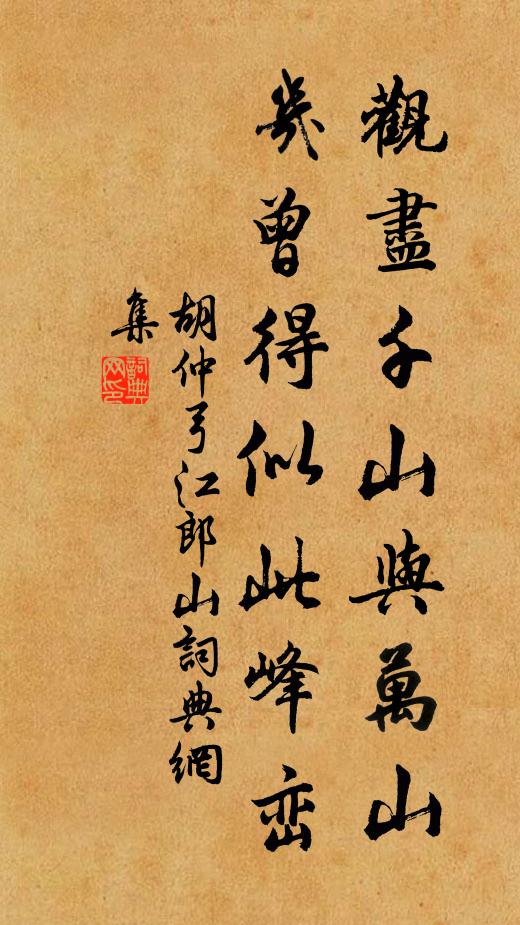 觀盡千山與萬山
幾曾得似此峰峦
胡仲弓江郎山詞典網
集
詞典
网印